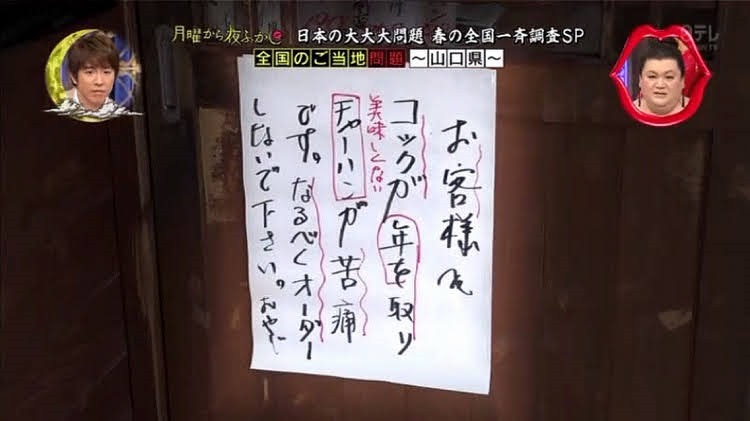 月曜から夜ふかし
日本の大大大問題 春の全国一斉調査SP
全国のご当地問題 ～山口県～
日テレ
お客様へ
コックが年を取り
美味しくない
チャーハンが苦痛
です。なるべくオーダー
しないで下さい。おやじ